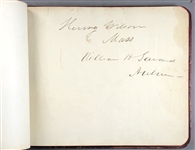 Henry Wilson
Mass
William H Seward
Auburn